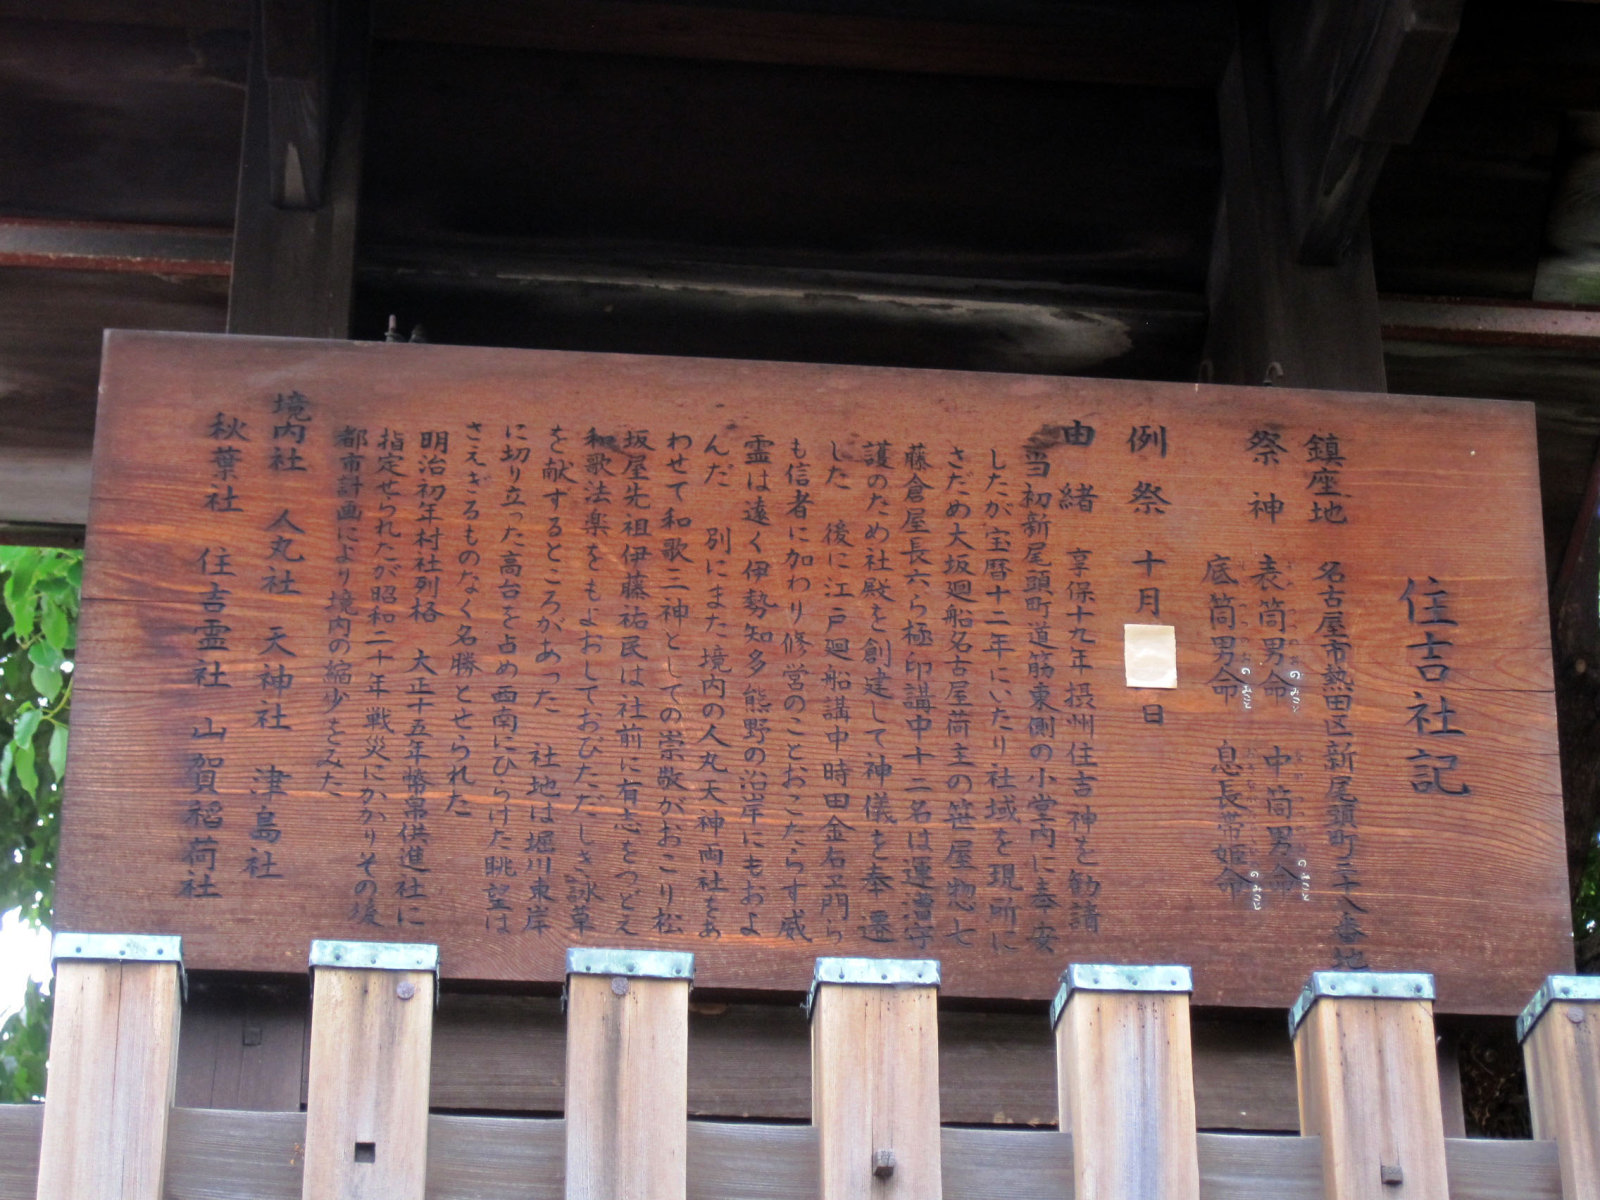 住吉社記
鎮座地　名古屋市熱田区新尾頭町三十八番地
祭神　表筒男命　中筒男命
のみこと　のみこと
底筒男命　息長帯姫命
のみこと　のみこと
例祭　十月　日
由緒　享保十九年摂州住吉神を勧請
当初新尾頭町道筋東側の小堂内に奉安
したが宝暦十二年にいたり社域を現所に
さだめ大坂廻船名古屋荷主の笹屋惣七
藤倉屋長六ら極印講中十二名は運漕守
護のため社殿を創建して神儀を奉遷
した　後に江戸廻船講中時田金右エ門ら
も信者に加わり修営のことおこたらす威
霊は遠く伊勢知多熊野の沿岸にもおよ
んだ　別にまた境内の人丸天神両社をあ
わせて和歌三神としての崇敬がおこり松
坂屋先祖伊藤祐民は社前に有志をつどえ
和歌法楽をもよおしておびただしき詠草
を献するところがあった　社地は堀川東岸
に切り立った高台を占め西南にひらけた眺望は
さえぎるものなく名勝とせられた
明治初年村社列格　大正十五年幣帛供進社に
指定せられたが昭和二十年戦災にかかりその後
都市計画により境内の縮少をみた
境内社　人丸社　天神社　津島社
秋葉社　住吉霊社　山賀稲荷社